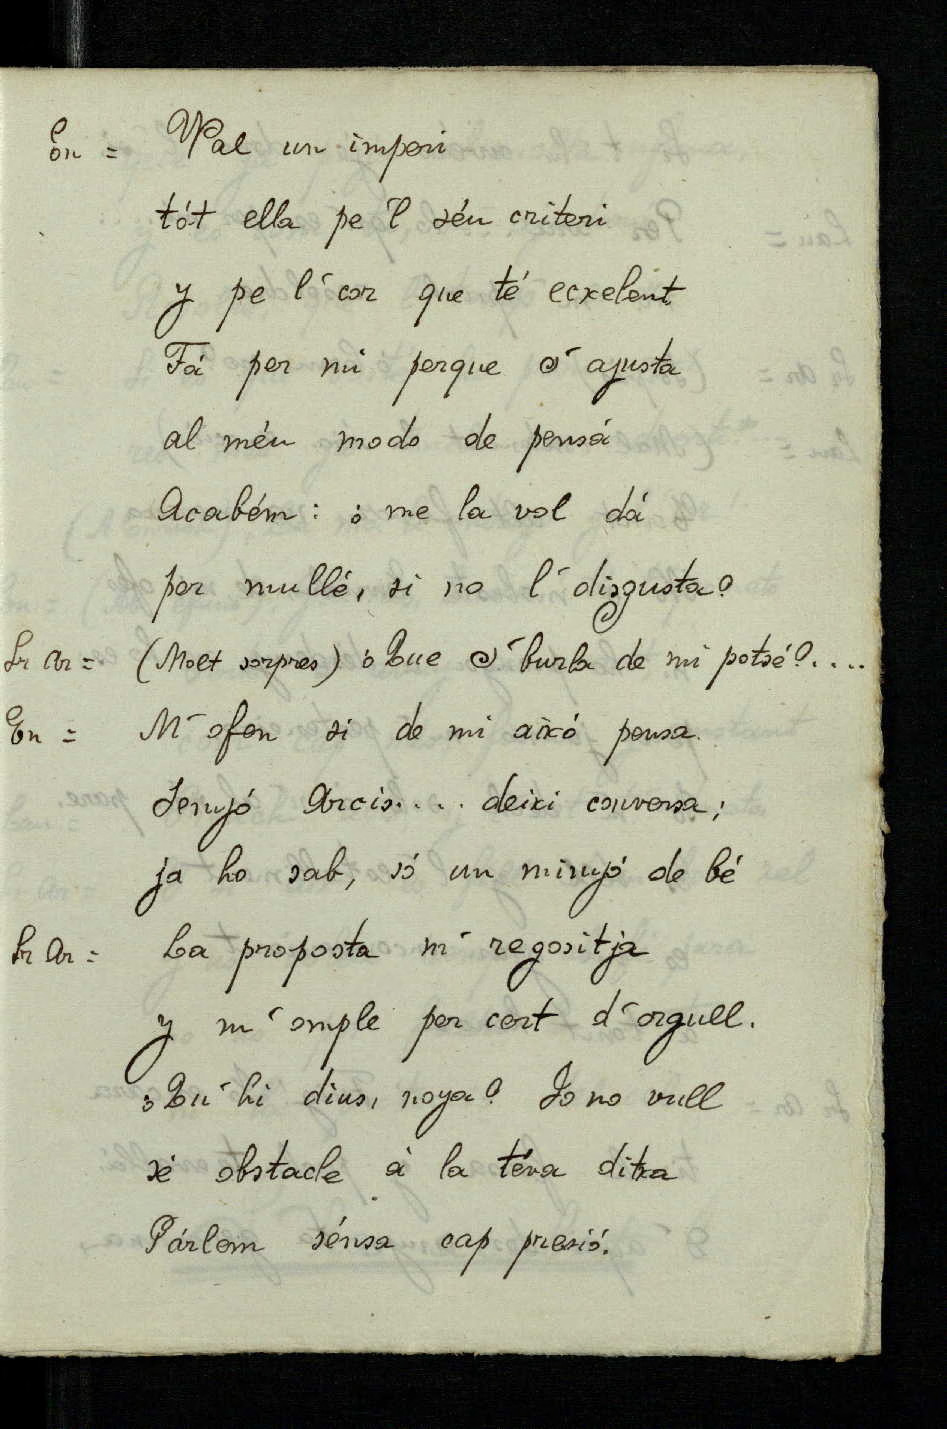 En = Val un imperi
tót ella pe 'l séu criteri
y pe l' cor que té ecxelent
Fá per mi perque s' ajusta
al méu modo de pensá
Acabém: ¿ me la vol dá
per mullé, si no l' disgusta?
Sr Ar = (Molt sorpres) ¿ Que s' burla de mi potsé?....
En = M' ofen si de mi aixó pensa.
Senyó Arcis.... deixi conversa;
ja ho sab, só un minyó de bé
Sr Ar = La proposta m' regositja
y m' omple per cert d' orgull.
¿ Qu' hi dius, noya? Jo no vull
sé obstacle á la téva ditxa
Párlem sénsa cap presió.